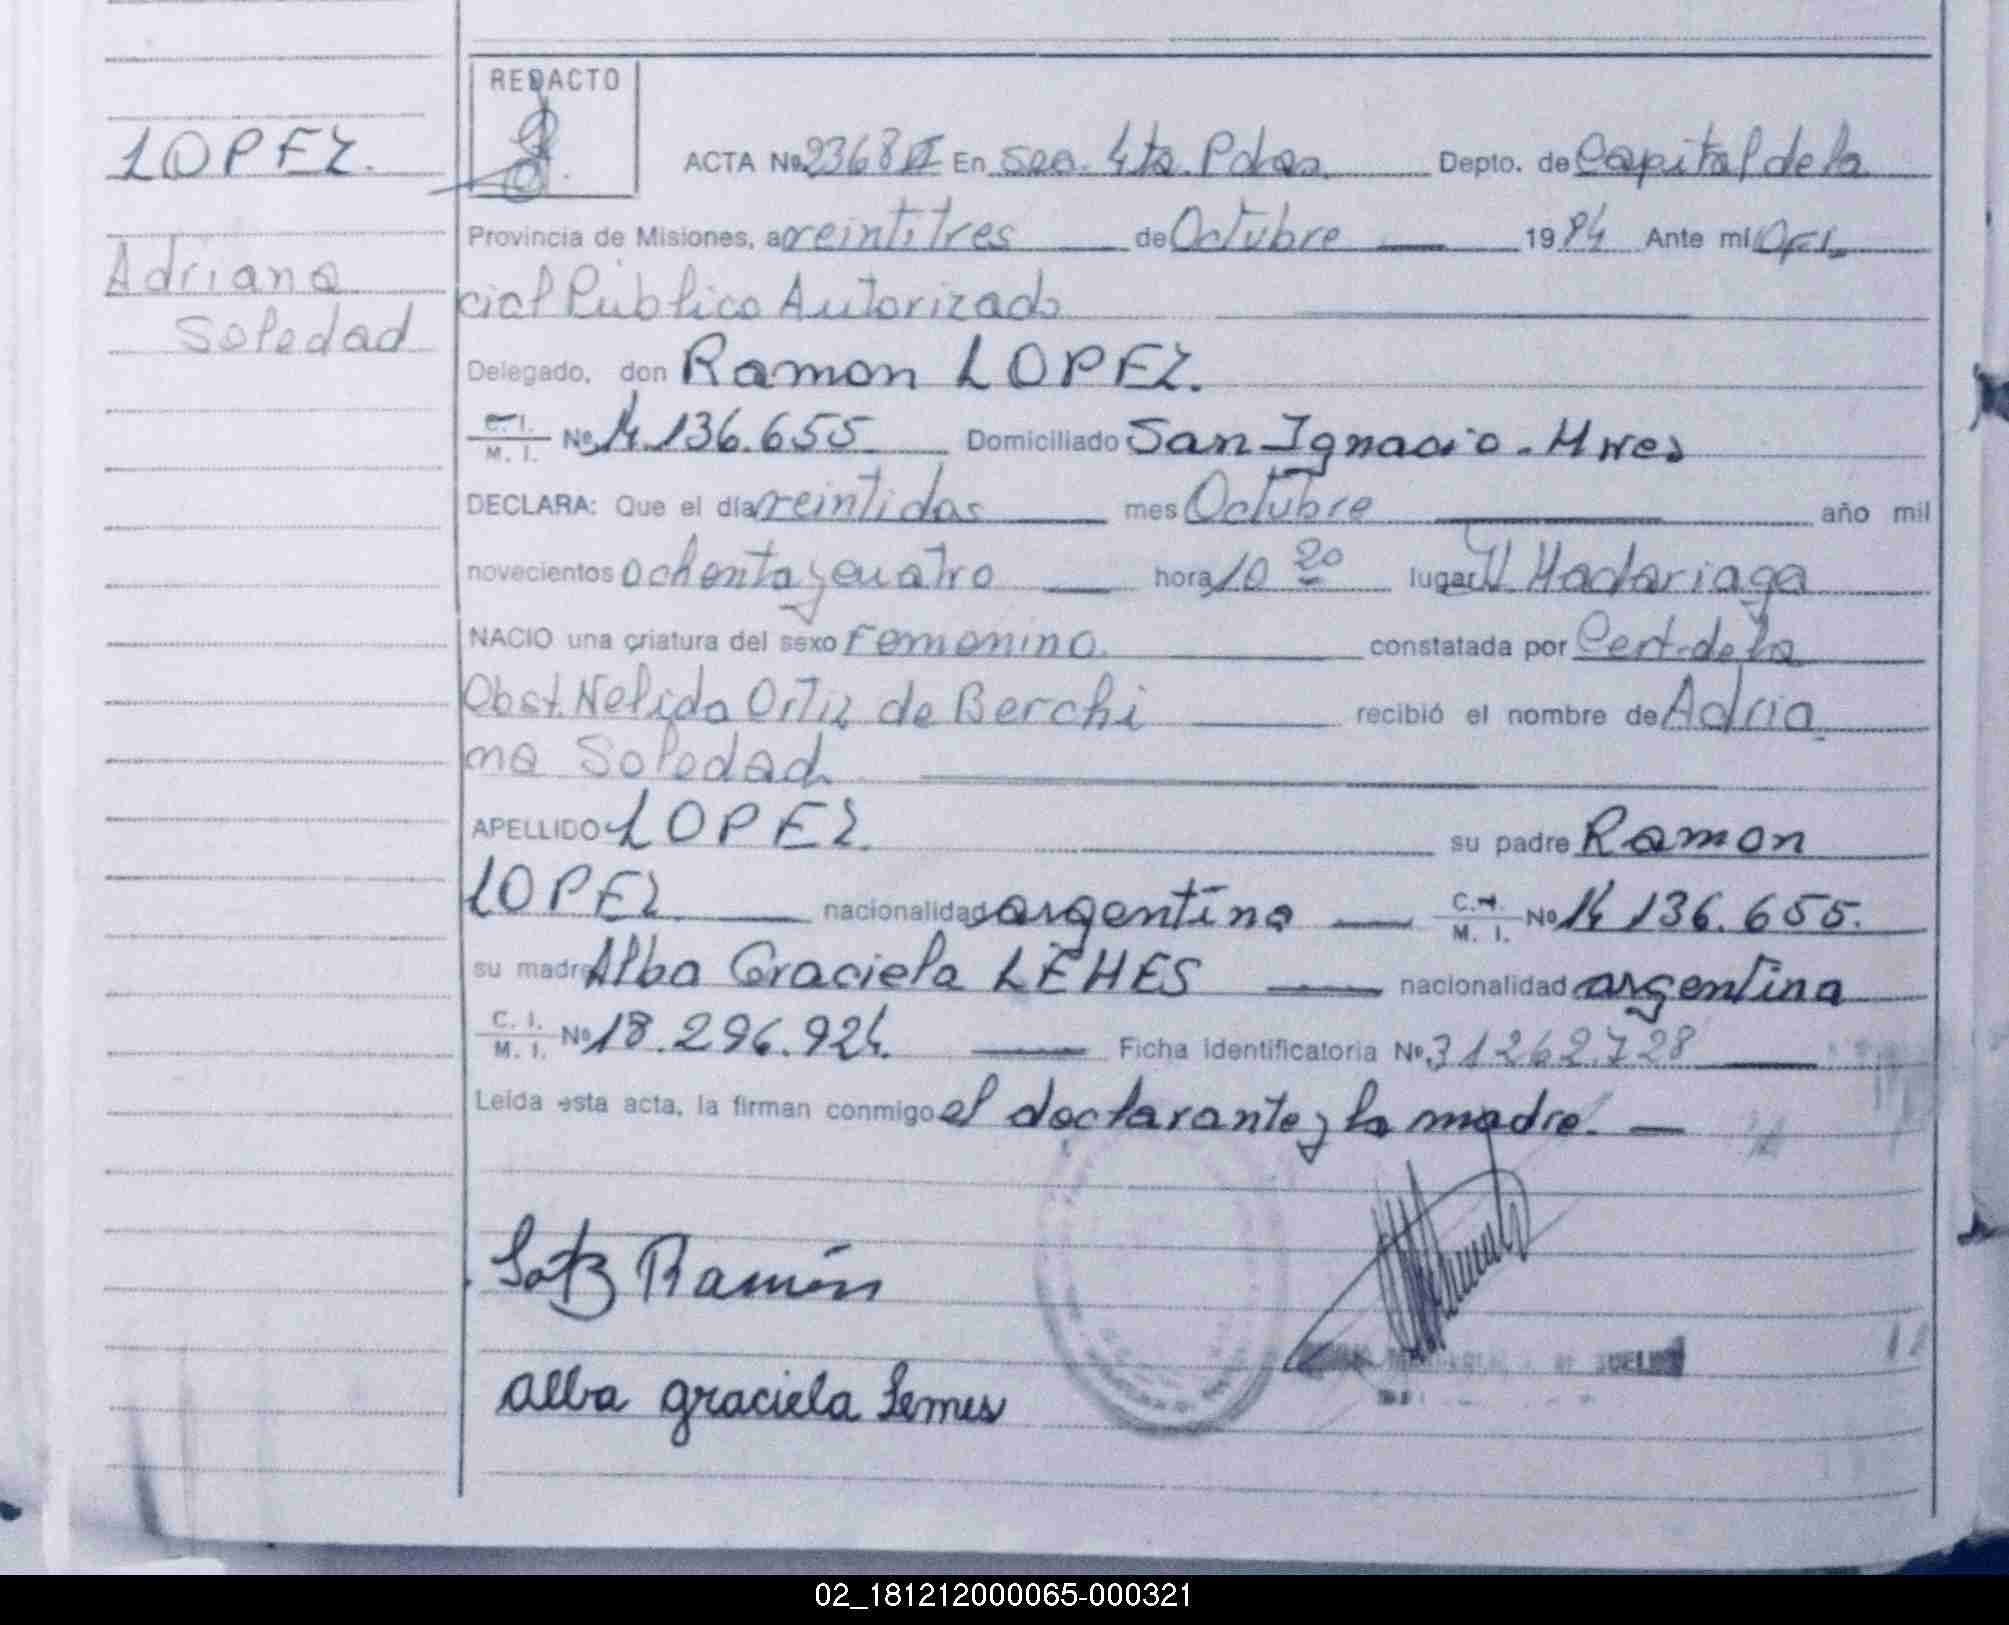 REDACTO
LOPEZ.
ACTA Nº 2368 En Sec. 4ta. Pdas. Depto. de Capital de la
Provincia de Misiones, a veintitres de Octubre 1984 Ante mi Ofi
Adriana
cial Público Autorizado
Soledad
Delegado, don Ramon LOPEZ.
C. I. M. I. Nº 14.136.655 Domiciliado San Ignacio - Mnes
DECLARA: Que el día veintidos mes Octubre año mil
novecientos ochenta y cuatro hora 10 20 lugar Madariaga
NACIO una criatura del sexo Femenino. constatada por Cert. de la
Obst. Nelida Ortiz de Berchi recibió el nombre de Adria
na Soledad
APELLIDO LOPEZ. su padre Ramon
LOPEZ nacionalidad argentina C. I. M. I. Nº 14 136.655.
su madre Alba Graciela LEMES nacionalidad argentina
C. I. M. I. Nº 18.296.924. Ficha identificatoria Nº 31262.728
Leída esta acta, la firman conmigo el declarante y la madre.
Ramón
alba graciela Lemes
02_181212000065-000321